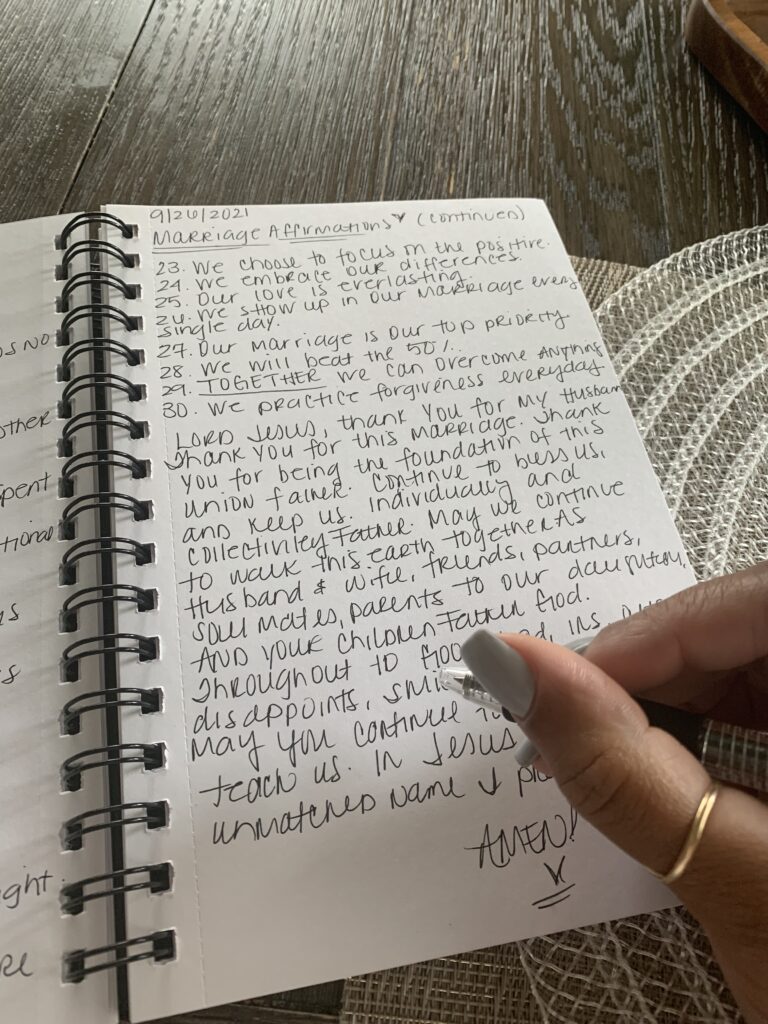 9/26/2021
Marriage Affirmations (continued)
23. We choose to focus on the positive.
24. We embrace our differences.
25. Our love is everlasting.
26. We show up in our marriage every
single day.
27. Our marriage is our top priority
28. We will beat the 50%.
29. TOGETHER we can overcome ANYTHING
30. We practice forgiveness everyday
LORD JESUS, thank You for my Husban
Thank You for this marriage. Thank
You for being the foundation of this
union Father. Continue to bless us,
and keep us. Individually and
collectivley Father. May we continue
to walk this earth together AS
Husband & Wife, friends, partners,
soul mates, parents to our daughter,
AND your children Father God.
Throughout to
disappoints,
May you continue
teach us. In Jesus
unmatched name &
AMEN!
other
spent
tional
ight.